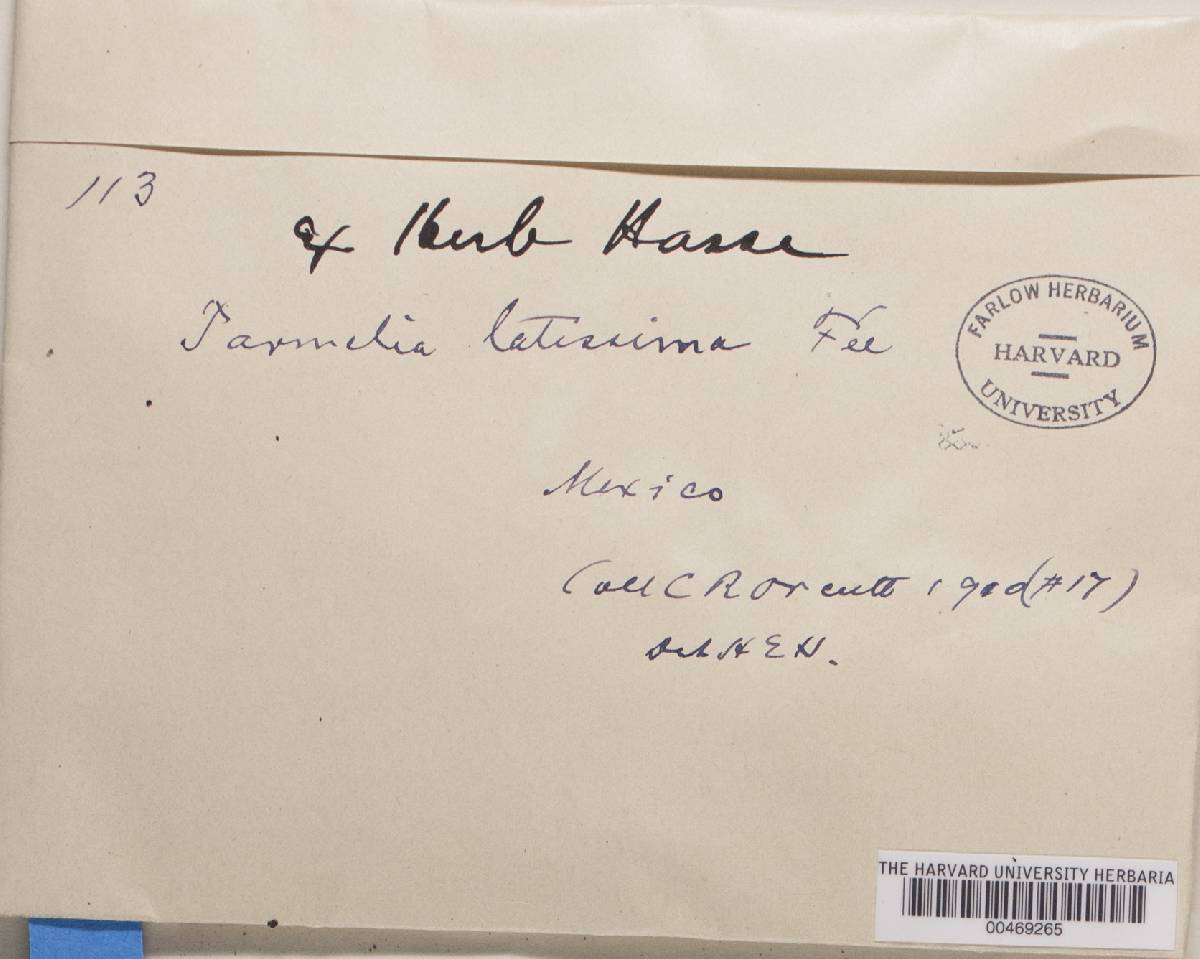 113
ex Herb Hasse
Parmelia latissima Fee
FARLOW HERBARIUM
HARVARD
UNIVERSITY
Mexico
Coll C R Orcutt (#17)
Det H E H.
THE HARVARD UNIVERSITY HERBARIA
00469265